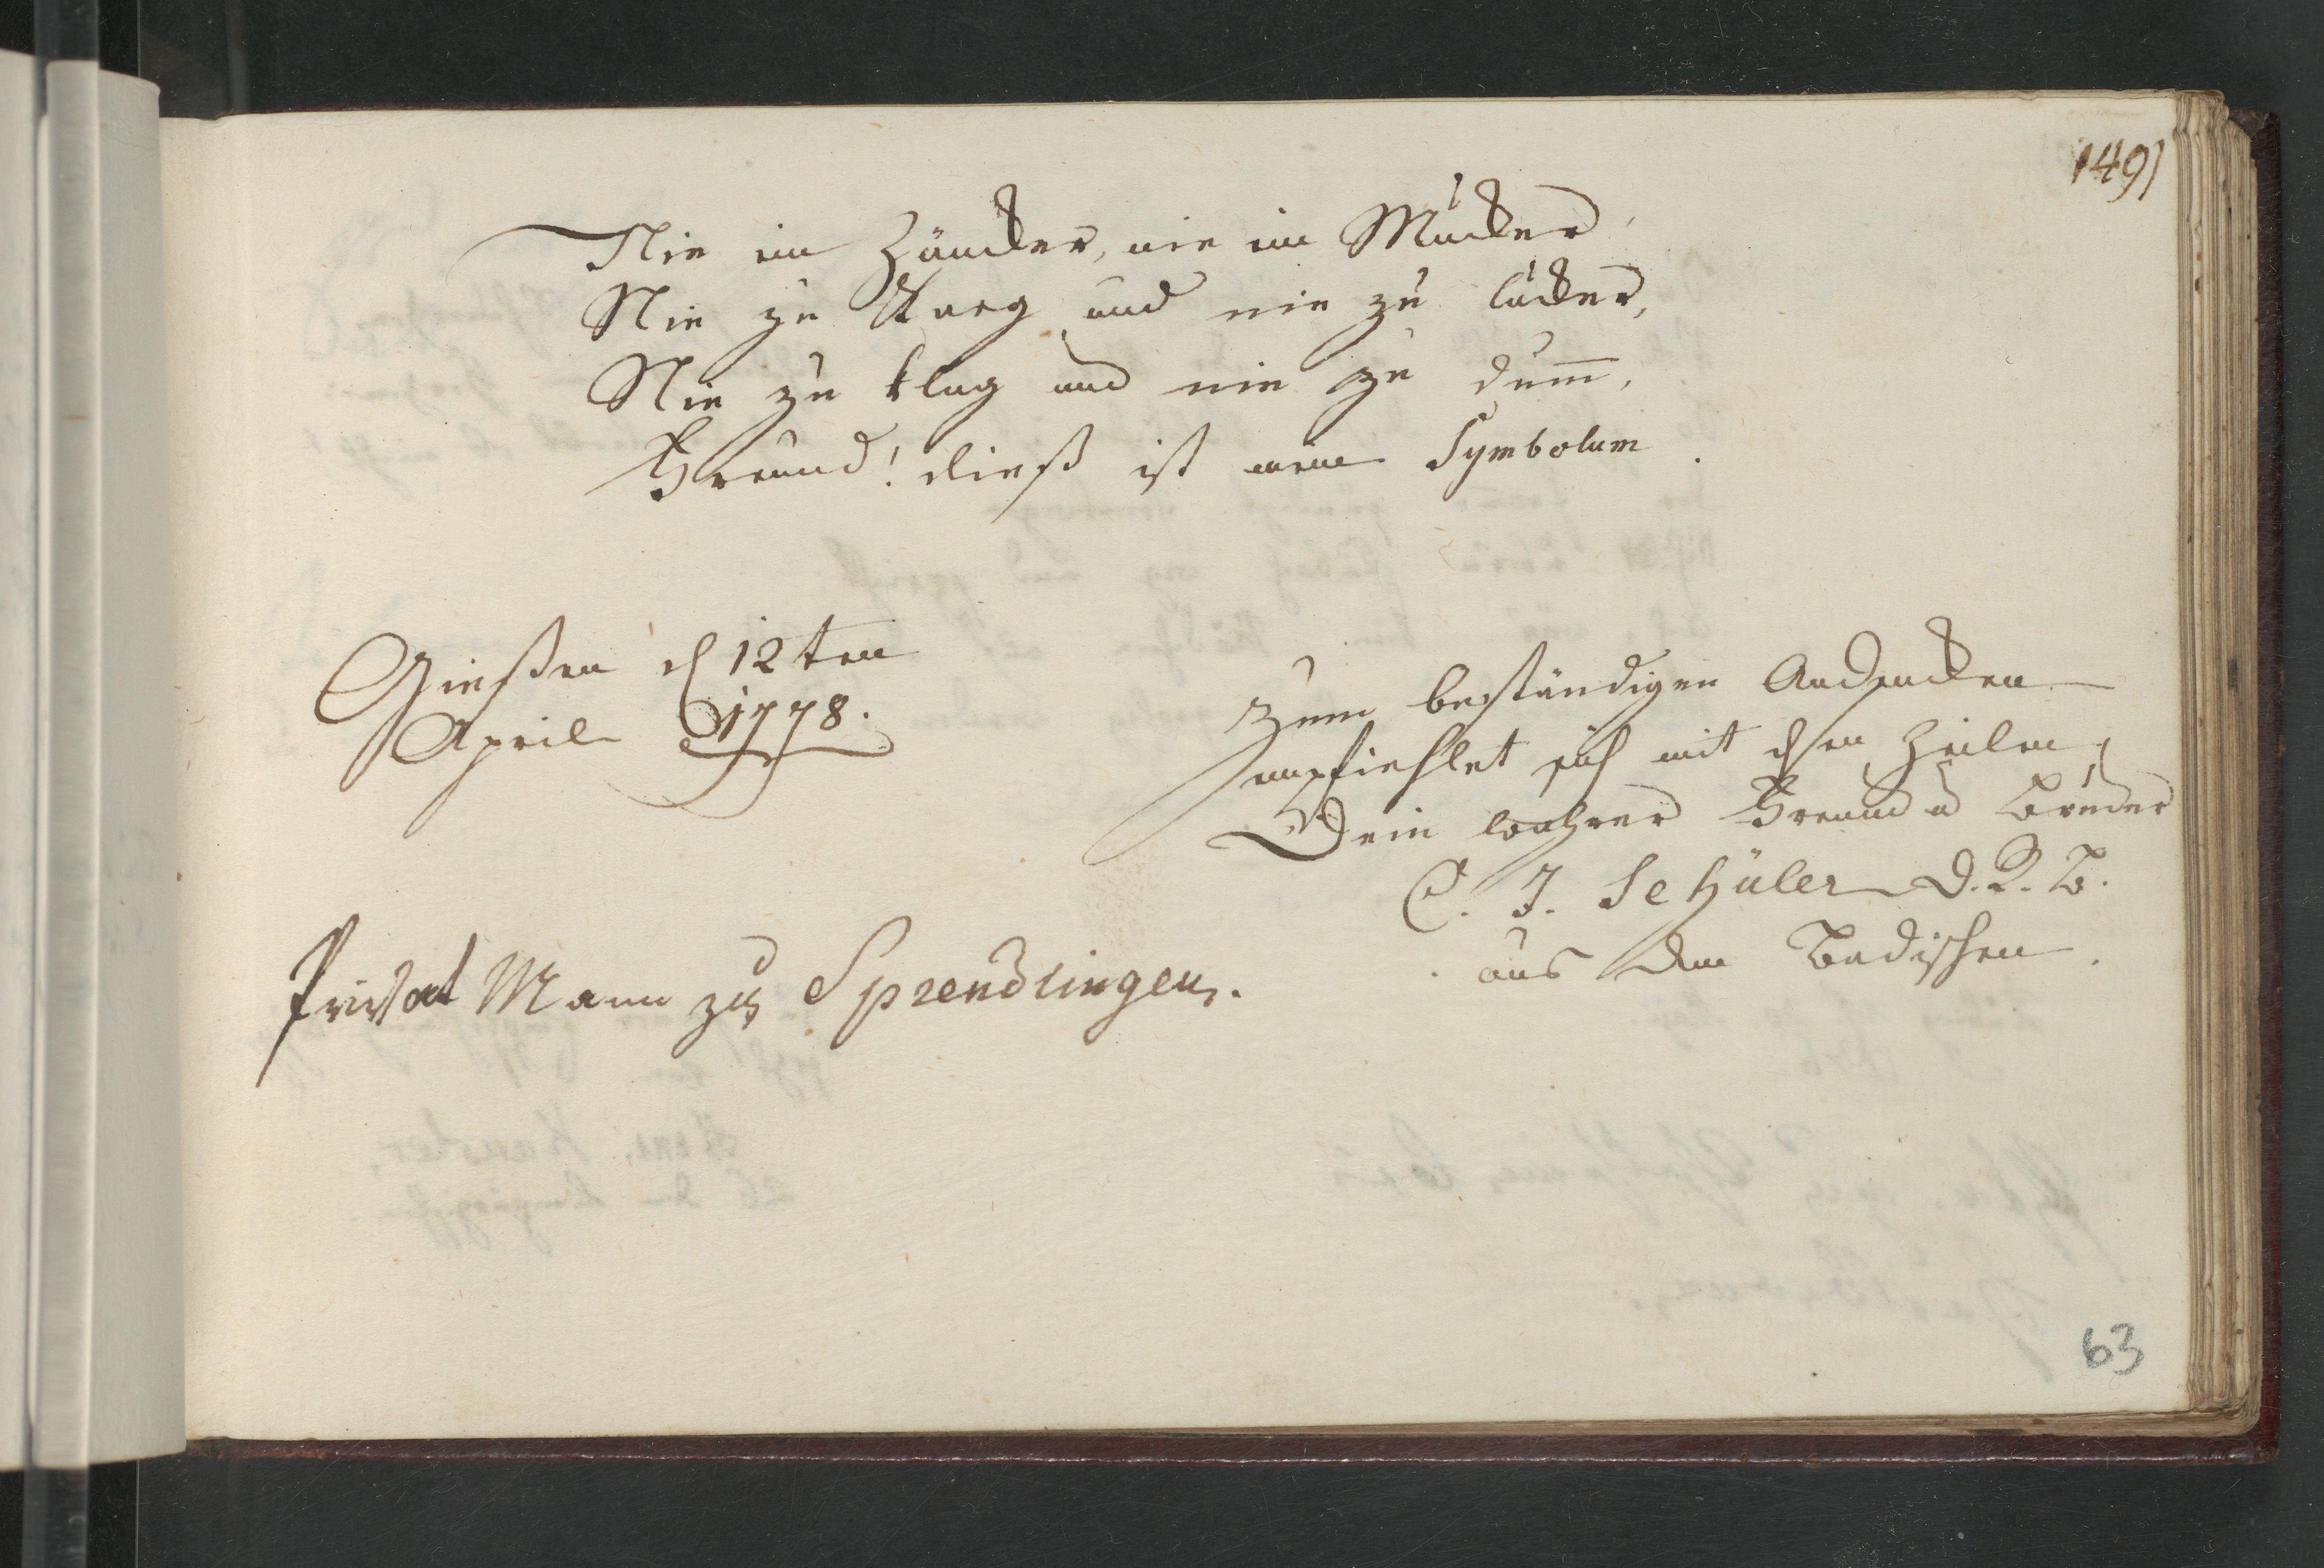 149)
Nie im Zäncker, nie im Mücker
Nie zu Karg und nie zu lücker,
Nie zu klug und nie zu dum̅,
Freund! dieß ist mein Symbolum.
Gießen d 12ten
April 1778.
Zum beständigen Andencken
empfiehlet sich mit dsen Zeilen
Dein wahrer Freund u Bruder
C. J. Schüler D. R. B.
aus dem Badischen.
Privat Mann zu Sprendlingen.
63